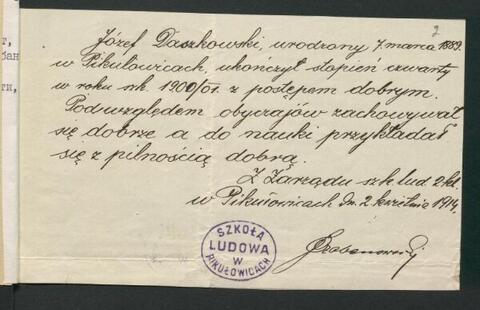 2
т,
бан
ти,
Józef Daszkowski, urodzony 7. marca 1889.
w Pikułowicach, ukończył stopień czwarty
w roku szk. 1900/01. z postępem dobrym.
Pod względem obyczajów zachowywał
się dobrze a do nauki przykładał
się z pilnością dobrą.
Z Zarządu szk. lud. 2 kl.
w Pikułowicach dn. 2 kwietnia 1914.
SZKOŁA
LUDOWA
W
PIKUŁOWICACH